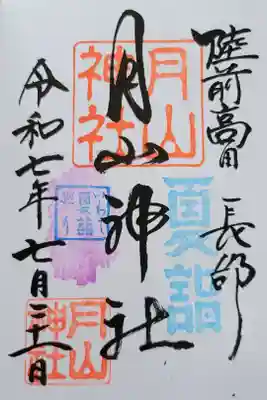 陸前高田 長部
夏詣
月山神社
月山神社
夏詣
令和七年七月三十一日
月山神社